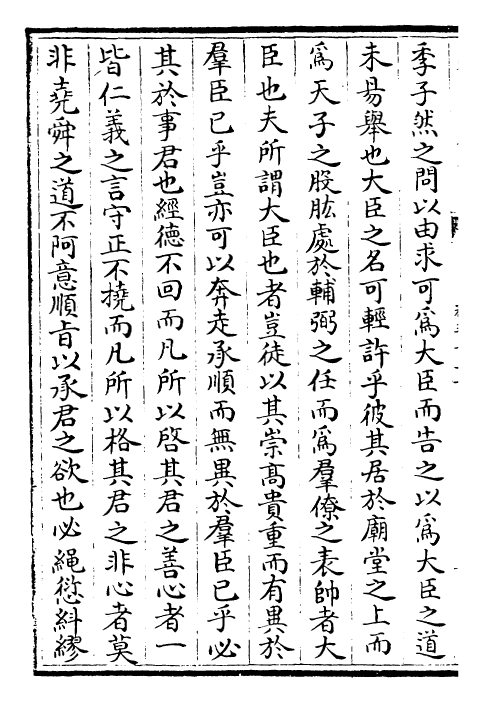 季子然之問以由求可爲大臣而告之以爲大臣之道
未易舉也大臣之名可輕許乎彼其居於廟堂之上而
爲天子之股肱處於輔弼之任而爲羣僚之表帥者大
臣也夫所謂大臣也者豈徒以其崇高貴重而有異於
羣臣已乎豈亦可以奔走承順而無異於羣臣已乎必
其於事君也經德不回而凡所以啓其君之善心者一
皆仁義之言守正不撓而凡所以格其君之非心者莫
非堯舜之道不阿意順㫖以承君之欲也必繩愆糾繆